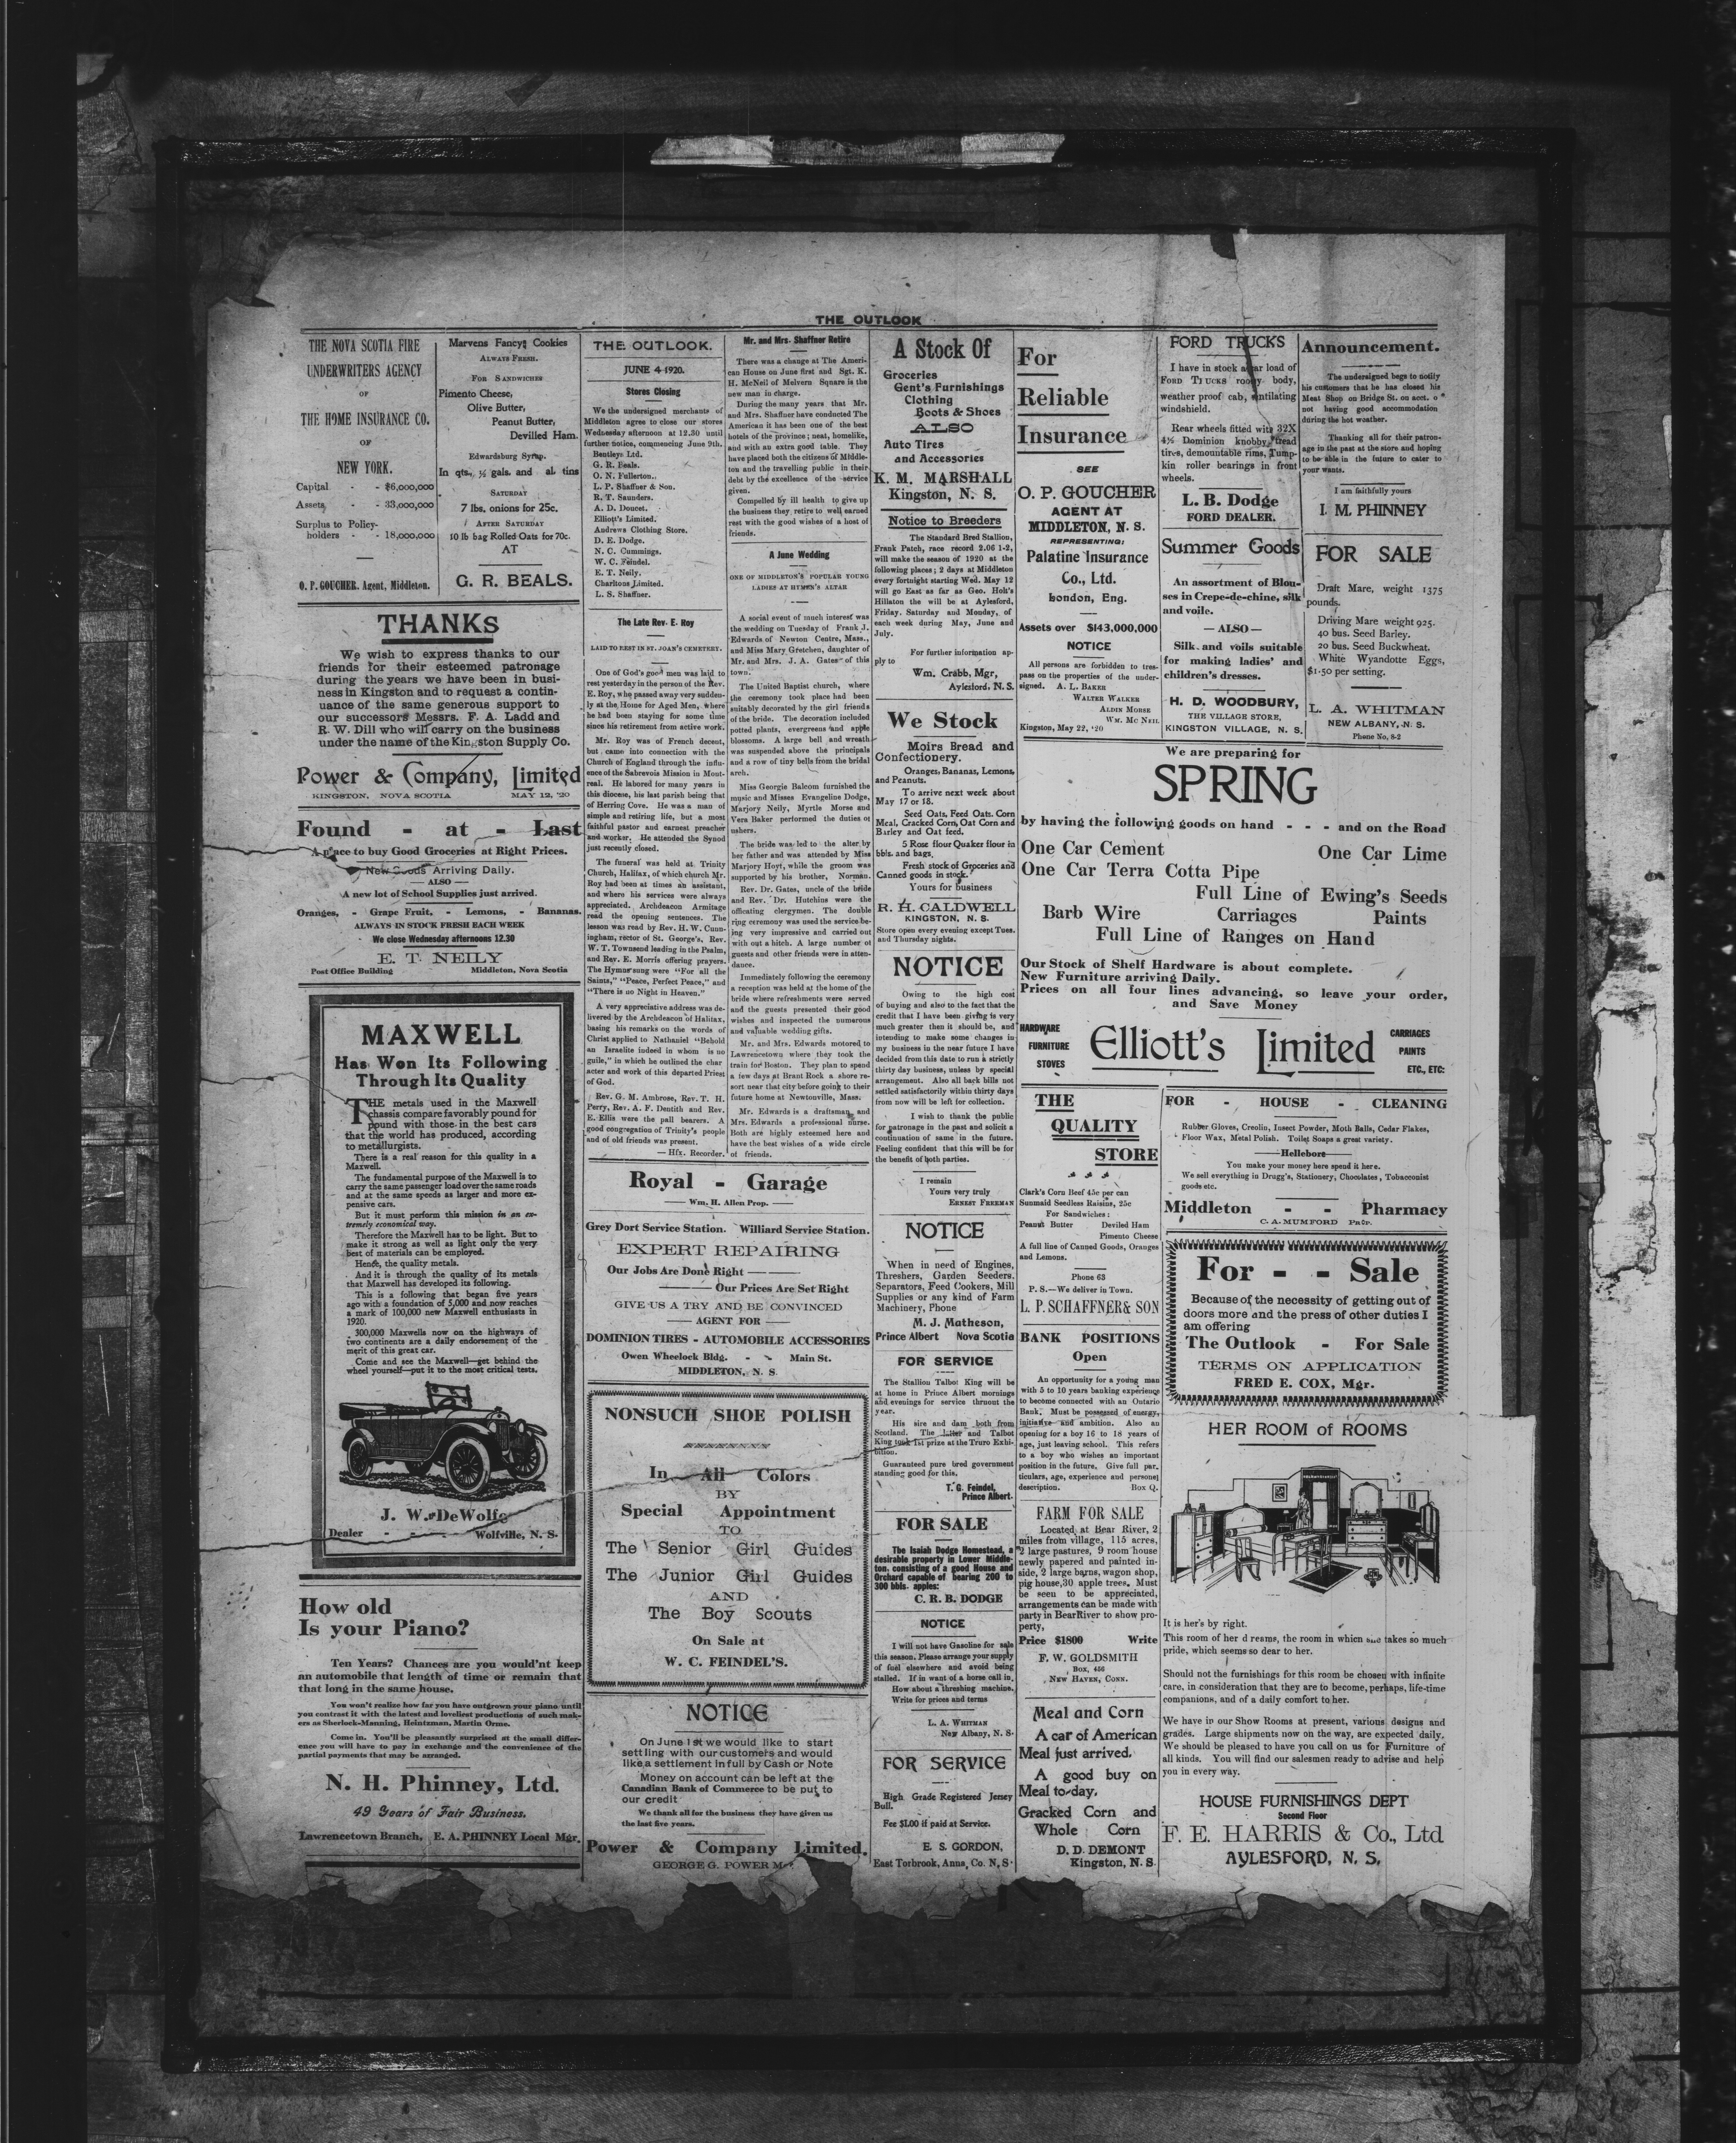 THE OUTLOOK
THE NOVA SCOTIA FIRE
UNDERWRITERS AGENCY
OF
THE HOME INSURANCE CO.
OF
NEW YORK.
Capital - - $6,000,000
Assets - - 33,000,000
Surplus to Policy-
holders - - 18,000,000
O. P. GOUCHER, Agent, Middleton.
Marvens Fancy Cookies
ALWAYS FRESH.
FOR SANDWICHES
Pimento Cheese,
Olive Butter,
Peanut Butter,
Devilled Ham.
Edwardsburg Syrup.
In qts., ½ gals. and al. tins
SATURDAY
7 lbs. onions for 25c.
AFTER SATURDAY
10 lb bag Rolled Oats for 70c.
AT
G. R. BEALS.
THANKS
We wish to express thanks to our
friends for their esteemed patronage
during the years we have been in busi-
ness in Kingston and to request a contin-
uance of the same generous support to
our successors Messrs. F. A. Ladd and
R. W. Dill who will carry on the business
under the name of the Kingston Supply Co.
Power & Company, Limited
KINGSTON, NOVA SCOTIA MAY 12, '20
Found - at - Last
A place to buy Good Groceries at Right Prices.
New Goods Arriving Daily.
— ALSO —
A new lot of School Supplies just arrived.
Oranges, - Grape Fruit, - Lemons, - Bananas.
ALWAYS IN STOCK FRESH EACH WEEK
We close Wednesday afternoons 12.30
E. T. NEILY
Post Office Building Middleton, Nova Scotia
MAXWELL
Has Won Its Following
Through Its Quality
THE metals used in the Maxwell
chassis compare favorably pound for
pound with those in the best cars
that the world has produced, according
to metallurgists.
There is a real reason for this quality in a
Maxwell.
The fundamental purpose of the Maxwell is to
carry the same passenger load over the same roads
and at the same speeds as larger and more ex-
pensive cars.
But it must perform this mission in an ex-
tremely economical way.
Therefore the Maxwell has to be light. But to
make it strong as well as light only the very
best of materials can be employed.
Hence, the quality metals.
And it is through the quality of its metals
that Maxwell has developed its following.
This is a following that began five years
ago with a foundation of 5,000 and now reaches
a mark of 100,000 new Maxwell enthusiasts in
1920.
300,000 Maxwells now on the highways of
two continents are a daily endorsement of the
merit of this great car.
Come and see the Maxwell—get behind the
wheel yourself—put it to the most critical tests.
J. W. DeWolfe
Dealer - - - Wolfville, N. S.
How old
Is your Piano?
Ten Years? Chances are you would'nt keep
an automobile that length of time or remain that
that long in the same house.
You won't realize how far you have outgrown your piano until
you contrast it with the latest and loveliest productions of such mak-
ers as Sherlock-Manning, Heintzman, Martin Orme.
Come in. You'll be pleasantly surprised at the small differ-
ence you will have to pay in exchange and the convenience of the
partial payments that may be arranged.
N. H. Phinney, Ltd.
49 Years of Fair Business.
Lawrencetown Branch, E. A. PHINNEY Local Mgr.
THE OUTLOOK.
JUNE 4 1920.
Stores Closing
We the undersigned merchants of
Middleton agree to close our stores
Wednesday afternoon at 12.30 until
further notice, commencing June 9th.
Bentleys Ltd.
G. R. Beals.
O. N. Fullerton..
L. P. Shaffner & Son.
R. T. Saunders.
A. D. Doucet.
Elliott's Limited.
Andrews Clothing Store.
D. E. Dodge.
N. C. Cummings.
W. C. Feindel.
E. T. Neily.
Charltons Limited.
L. S. Shaffner.
The Late Rev. E. Roy
LAID TO REST IN ST. JOAN'S CEMETERY.
One of God's good men was laid to
rest yesterday in the person of the Rev.
E. Roy, who passed away very sudden-
ly at the Home for Aged Men, where
he had been staying for some time
since his retirement from active work.
Mr. Roy was of French decent,
but came into connection with the
Church of England through the influ-
ence of the Sabrevois Mission in Mont-
real. He labored for many years in
this diocese, his last parish being that
of Herring Cove. He was a man of
simple and retiring life, but a most
faithful pastor and earnest preacher
and worker. He attended the Synod
just recently closed.
The funeral was held at Trinity
Church, Halifax, of which church Mr.
Roy had been at times an assistant,
and where his services were always
appreciated. Archdeacon Armitage
read the opening sentences. The
lesson was read by Rev. H. W. Cunn-
ingham, rector of St. George's, Rev.
W. T. Townsend leading in the Psalm,
and Rev. E. Morris offering prayers.
The Hymns sung were "For all the
Saints," "Peace, Perfect Peace," and
"There is no Night in Heaven."
A very appreciative address was de-
livered by the Archdeacon of Halifax,
basing his remarks on the words of
Christ applied to Nathaniel "Behold
an Israelite indeed in whom is no
guile," in which he outlined the char
acter and work of this departed Priest
of God.
Rev. G. M. Ambrose, Rev. T. H.
Perry, Rev. A. F. Dentith and Rev.
E. Ellis were the pall bearers. A
good congregation of Trinity's people
and of old friends was present.
— Hfx. Recorder.
Mr. and Mrs. Shaffner Retire
There was a change at The Ameri-
can House on June first and Sgt. K.
H. McNeil of Melvern Square is the
new man in charge.
During the many years that Mr.
and Mrs. Shaffner have conducted The
American it has been one of the best
hotels of the province; neat, homelike,
and with an extra good table. They
have placed both the citizens of Middle-
ton and the travelling public in their
debt by the excellence of the service
given.
Compelled by ill health to give up
the business they retire to well earned
rest with the good wishes of a host of
friends.
A June Wedding
ONE OF MIDDLETON'S POPULAR YOUNG
LADIES AT HYMEN'S ALTAR
A social event of much interest was
the wedding on Tuesday of Frank J.
Edwards of Newton Centre, Mass.,
and Miss Mary Gretchen, daughter of
Mr. and Mrs. J. A. Gates of this
town.
The United Baptist church, where
the ceremony took place had been
suitably decorated by the girl friends
of the bride. The decoration included
potted plants, evergreens and apple
blossoms. A large bell and wreath
was suspended above the principals
and a row of tiny bells from the bridal
arch.
Miss Georgie Balcom furnished the
music and Misses Evangeline Dodge,
Marjory Neily, Myrtle Morse and
Vera Baker performed the duties of
ushers.
The bride was led to the alter by
her father and was attended by Miss
Marjory Hoyt, while the groom was
supported by his brother, Norman.
Rev. Dr. Gates, uncle of the bride
and Rev. Dr. Hutchins were the
officating clergymen. The double
ring ceremony was used the service be-
ing very impressive and carried out
with out a hitch. A large number of
guests and other friends were in atten-
dance.
Immediately following the ceremony
a reception was held at the home of the
bride where refreshments were served
and the guests presented their good
wishes and inspected the numerous
and valuable wedding gifts.
Mr. and Mrs. Edwards motored to
Lawrencetown where they took the
train for Boston. They plan to spend
a few days at Brant Rock a shore re-
sort near that city before going to their
future home at Newtonville, Mass.
Mr. Edwards is a draftsman, and
Mrs. Edwards a professional nurse.
Both are highly esteemed here and
have the best wishes of a wide circle
of friends.
Royal - Garage
— Wm. H. Allen Prop. —
Grey Dort Service Station. Williard Service Station.
EXPERT REPAIRING
Our Jobs Are Done Right — —
— Our Prices Are Set Right
GIVE US A TRY AND BE CONVINCED
— AGENT FOR —
DOMINION TIRES - AUTOMOBILE ACCESSORIES
Owen Wheelock Bldg. - - Main St.
MIDDLETON, N. S.
NONSUCH SHOE POLISH
In All Colors
BY
Special Appointment
TO
The Senior Girl Guides
The Junior Girl Guides
AND
The Boy Scouts
On Sale at
W. C. FEINDEL'S.
NOTICE
On June 1st we would like to start
settling with our customers and would
like a settlement in full by Cash or Note
Money on account can be left at the
Canadian Bank of Commerce to be put to
our credit
We thank all for the business they have given us
the last five years.
Power & Company Limited.
GEORGE G. POWER
A Stock Of
Groceries
Gent's Furnishings
Clothing
Boots & Shoes
ALSO
Auto Tires
and Accessories
K. M. MARSHALL
Kingston, N. S.
Notice to Breeders
The Standard Bred Stallion,
Frank Patch, race record 2.06 1-2,
will make the season of 1920 at the
following places; 2 days at Middleton
every fortnight starting Wed. May 12
will go East as far as Geo. Holt's
Hillaton the will be at Aylesford,
Friday, Saturday and Monday, of
each week during May, June and
July.
For further information ap-
ply to
Wm. Crabb, Mgr,
Aylesford, N. S.
We Stock
Moirs Bread and
Confectionery.
Oranges, Bananas, Lemons,
and Peanuts.
To arrive next week about
May 17 or 18.
Seed Oats, Feed Oats, Corn
Meal, Cracked Corn, Oat Corn and
Barley and Oat feed.
5 Rose flour Quaker flour in
bbls. and bags.
Fresh stock of Groceries and
Canned goods in stock.
Yours for business
R. H. CALDWELL
KINGSTON, N. S.
Store open every evening except Tues.
and Thursday nights.
NOTICE
Owing to the high cost
of buying and also to the fact that the
credit that I have been giving is very
much greater then it should be, and
intending to make some changes in
my business in the near future I have
decided from this date to run a strictly
thirty day business, unless by special
arrangement. Also all back bills not
settled satisfactorily within thirty days
from now will be left for collection.
I wish to thank the public
for patronage in the past and solicit a
continuation of same in the future.
Feeling confident that this will be for
the benefit of both parties.
I remain
Yours very truly
ERNEST FREEMAN
NOTICE
When in need of Engines,
Threshers, Garden Seeders,
Separators, Feed Cookers, Mill
Supplies or any kind of Farm
Machinery, Phone
M. J. Matheson,
Prince Albert Nova Scotia
FOR SERVICE
The Stallion Talbot King will be
at home in Prince Albert mornings
and evenings for service thruout the
year.
His sire and dam both from
Scotland. The latter and Talbot
King took 1st prize at the Truro Exhi-
bition.
Guaranteed pure bred government
standing good for this.
T. G. Feindel,
Prince Albert.
FOR SALE
The Isaiah Dodge Homestead, a
desirable property in Lower Middle-
ton, consisting of a good House and
Orchard capable of bearing 200 to
300 bbls. apples:
C. R. B. DODGE
NOTICE
I will not have Gasoline for sale
this season. Please arrange your supply
of fuel elsewhere and avoid being
stalled. If in want of a horse call in.
How about a threshing machine.
Write for prices and terms
L. A. WHITMAN
New Albany, N. S.
FOR SERVICE
High Grade Registered Jersey
Bull.
Fee $1.00 if paid at Service.
E. S. GORDON,
East Torbrook, Anna, Co. N, S.
For
Reliable
Insurance
SEE
O. P. GOUCHER
AGENT AT
MIDDLETON, N. S.
REPRESENTING:
Palatine Insurance
Co., Ltd.
London, Eng.
Assets over $143,000,000
NOTICE
All persons are forbidden to tres-
pass on the properties of the under-
signed. A. L. BAKER
WALTER WALKER
ALDIN MORSE
WM. MC NEIL
Kingston, May 22, '20
FORD TRUCKS
I have in stock a car load of
FORD TRUCKS roomy body,
weather proof cab, ventilating
windshield.
Rear wheels fitted with 32X
4½ Dominion knobby tread
tires, demountable rims, Tump-
kin roller bearings in front
wheels.
L. B. Dodge
FORD DEALER.
Summer Goods
An assortment of Blou-
ses in Crepe-de-chine, silk
and voile.
— ALSO —
Silk and voils suitable
for making ladies' and
children's dresses.
H. D. WOODBURY,
THE VILLAGE STORE,
KINGSTON VILLAGE, N. S.
Announcement.
The undersigned begs to notify
his customers that he has closed his
Meat Shop on Bridge St. on acct. o
not having good accommodation
during the hot weather.
Thanking all for their patron-
age in the past at the store and hoping
to be able in the future to cater to
your wants.
I am faithfully yours
I. M. PHINNEY
FOR SALE
Draft Mare, weight 1375
pounds.
Driving Mare weight 925.
40 bus. Seed Barley.
20 bus. Seed Buckwheat.
White Wyandotte Eggs,
$1.50 per setting.
L. A. WHITMAN
NEW ALBANY, N. S.
Phone No, 8-2
We are preparing for
SPRING
by having the following goods on hand - - - and on the Road
One Car Cement One Car Lime
One Car Terra Cotta Pipe
Full Line of Ewing's Seeds
Barb Wire Carriages Paints
Full Line of Ranges on Hand
Our Stock of Shelf Hardware is about complete.
New Furniture arriving Daily.
Prices on all four lines advancing, so leave your order,
and Save Money
HARDWARE
FURNITURE
STOVES
Elliott's Limited
CARRIAGES
PAINTS
ETC., ETC:
THE
QUALITY
STORE
Clark's Corn Beef 45c per can
Sunmaid Seedless Raisins, 25c
For Sandwiches:
Peanut Butter Deviled Ham
Pimento Cheese
A full line of Canned Goods, Oranges
and Lemons.
Phone 63
P. S.—We deliver in Town.
L. P. SCHAFFNER & SON
BANK POSITIONS
Open
An opportunity for a young man
with 5 to 10 years banking experience
to become connected with an Ontario
Bank. Must be possessed of energy,
initiative and ambition. Also an
opening for a boy 16 to 18 years of
age, just leaving school. This refers
to a boy who wishes an important
position in the future. Give full par.
ticulars, age, experience and personel
description. Box Q.
FARM FOR SALE
Located at Bear River, 2
miles from village, 115 acres,
2 large pastures, 9 room house
newly papered and painted in-
side, 2 large barns, wagon shop,
pig house, 30 apple trees. Must
be seen to be appreciated,
arrangements can be made with
party in Bear River to show pro-
perty,
Price $1800 Write
F. W. GOLDSMITH
Box, 456
NEW HAVEN, CONN.
Meal and Corn
A car of American
Meal just arrived.
A good buy on
Meal to-day.
Gracked Corn and
Whole Corn
D. D. DEMONT
Kingston, N. S.
FOR - HOUSE - CLEANING
Rubber Gloves, Creolin, Insect Powder, Moth Balls, Cedar Flakes,
Floor Wax, Metal Polish. Toilet Soaps a great variety.
—Hellebore—
You make your money here spend it here.
We sell everything in Drugg's, Stationery, Chocolates, Tobacconist
goods etc.
Middleton - - Pharmacy
C. A. MUMFORD Prop.
For - - Sale
Because of the necessity of getting out of
doors more and the press of other duties I
am offering
The Outlook - For Sale
TERMS ON APPLICATION
FRED E. COX, Mgr.
HER ROOM of ROOMS
It is her's by right.
This room of her dreams, the room in which she takes so much
pride, which seems so dear to her.
Should not the furnishings for this room be chosen with infinite
care, in consideration that they are to become, perhaps, life-time
companions, and of a daily comfort to her.
We have in our Show Rooms at present, various designs and
grades. Large shipments now on the way, are expected daily.
We should be pleased to have you call on us for Furniture of
all kinds. You will find our salesmen ready to advise and help
you in every way.
HOUSE FURNISHINGS DEPT
Second Floor
F. E. HARRIS & Co., Ltd
AYLESFORD, N. S.